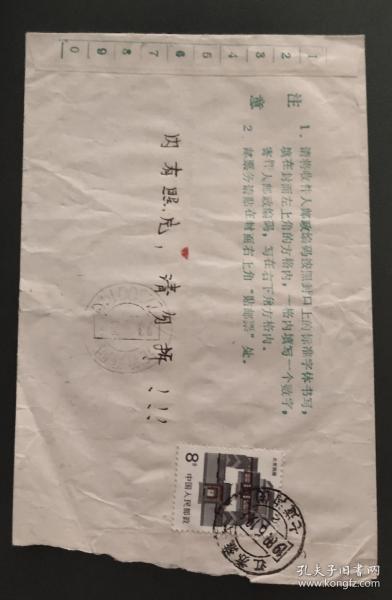 1 2 3 4 5 6 7 8 9 0
注意
1、请将收件人邮政编码按照封口上的标准字体书写,
填在封面左上角的方格内,一格内填写一个数字,
寄件人邮政编码,写在右下角方格内。
2、邮票务请贴在封面右上角“贴邮票”处。
内有照片,请勿折!!!
8分
中国人民邮政
北京民居
江苏
孔夫子旧书网
kongfz.com